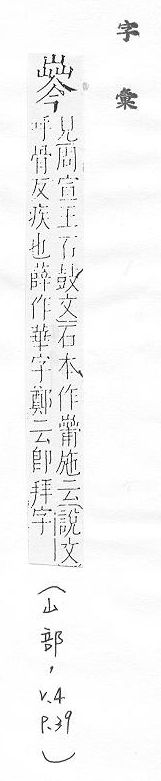 字彙
見周宣王石鼓文石本作𦻏施云說文
呼骨反疾也薛作華字鄭云卽拜字
(山部,
v.4
p.39)